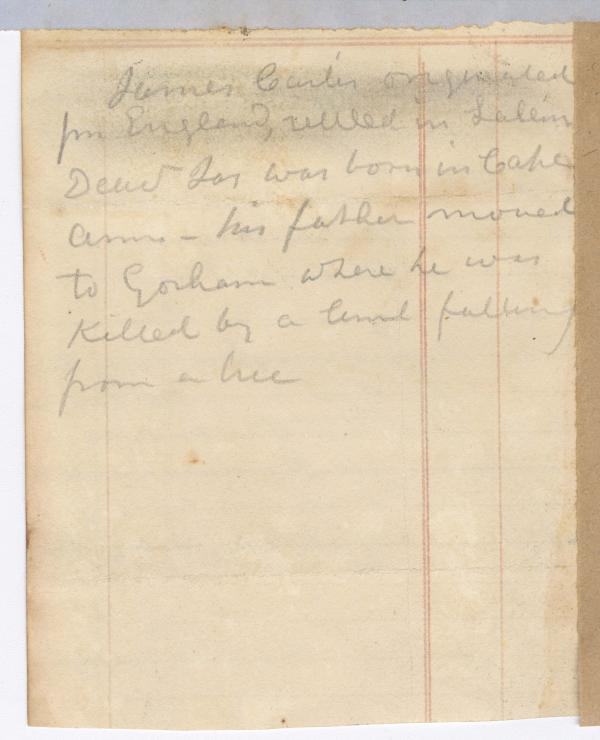 James Carter originated
fm England, settled in Salem
Dead Jas was born in Cape
Ann - his father moved
to Gorham where he was
Killed by a limb falling
from a tree